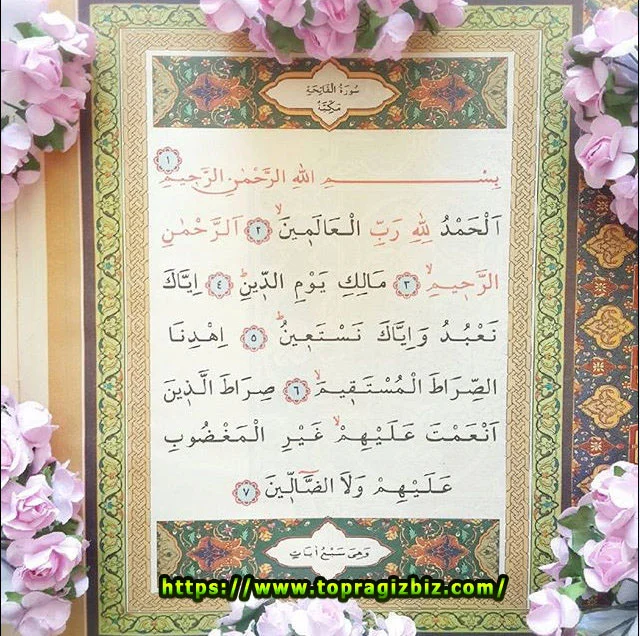 سُورَةُ الْفَاتِحَةِ
مَكِّيَّةٌ
بِسْــــــمِ اللهِ الرَّحْمٰنِ الرَّحٖيمِ ﴿١﴾
اَلْحَمْدُ لِلّٰهِ رَبِّ الْعَالَمٖينَۙ ﴿٢﴾ اَلرَّحْمٰنِ
الرَّحٖيمِۙ ﴿٣﴾ مَالِكِ يَوْمِ الدّٖينِؕ ﴿٤﴾ اِيَّاكَ
نَعْبُدُ وَاِيَّاكَ نَسْتَعٖينُؕ ﴿٥﴾ اِهْدِنَا
الصِّرَاطَ الْمُسْتَقٖيمَۙ ﴿٦﴾ صِرَاطَ الَّذٖينَ
اَنْعَمْتَ عَلَيْهِمْۙ غَيْرِ الْمَغْضُوبِ
عَلَيْهِمْ وَلَا الضَّٓالّٖينَ ﴿٧﴾
وَهِىَ سَبْعُ اٰيَاتٍ
https://www.topragizbiz.com/